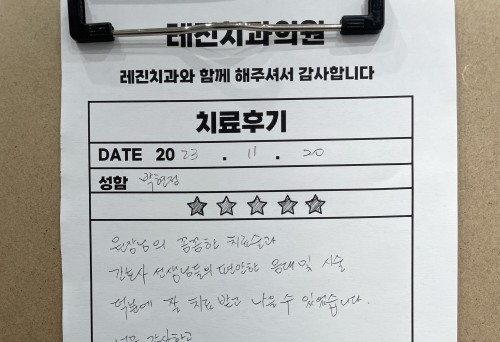 레진치과의원
레진치과와 함께 해주셔서 감사합니다
치료후기
DATE 20 23 . 11 . 20
성함 박현정
원장님의 꼼꼼한 치료술과
간호사 선생님들의 편안한 응대 및 시술
덕분에 잘 치료 받고 나올 수 있었습니다.
너무 감사하고